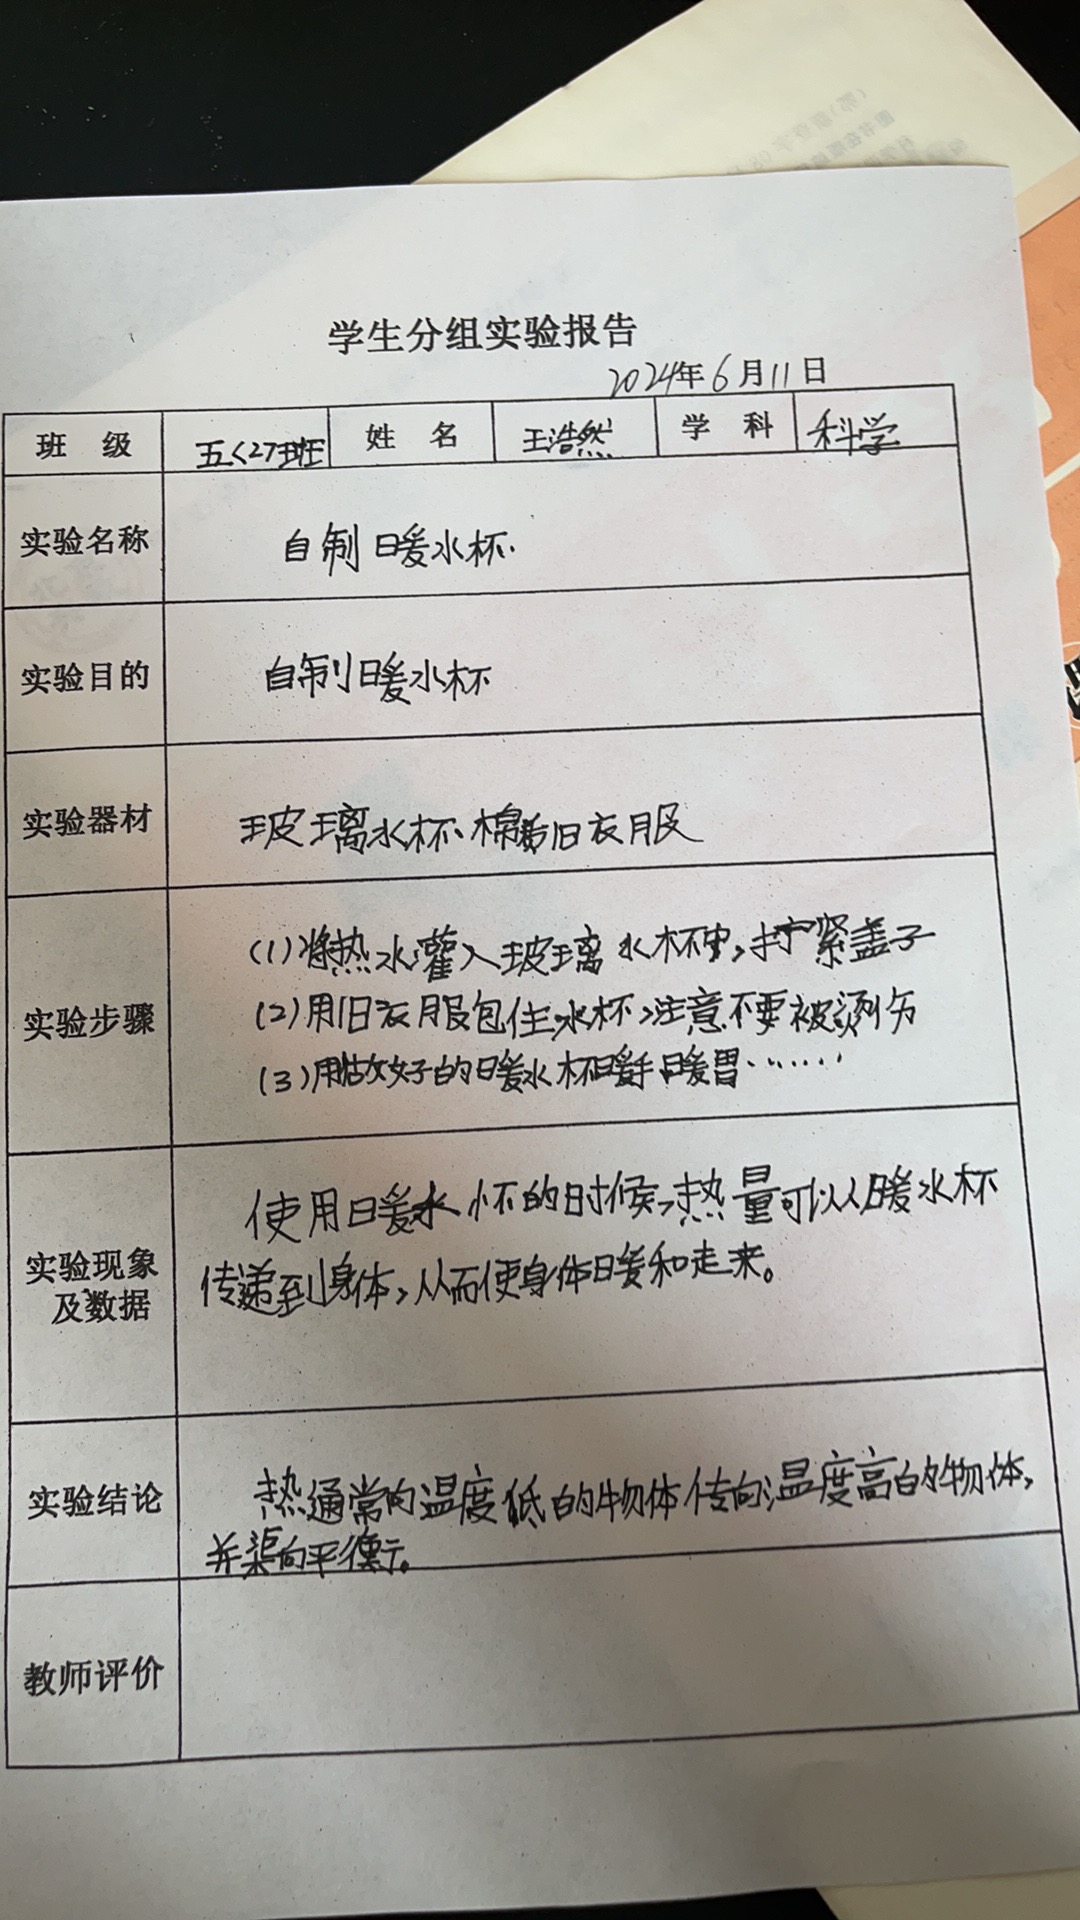 学生分组实验报告
2024年6月11日
班 级 五<27班 姓 名 王浩然 学 科 科学
实验名称 自制暖水杯.
实验目的 自制暖水杯
实验器材 玻璃水杯、棉、旧衣服
实验步骤
(1)将热水灌入玻璃水杯中,拧紧盖子
(2)用旧衣服包住水杯,注意不要被烫伤
(3)用做好的暖水杯暖手暖胃······
实验现象
及数据
使用暖水怀的时候,热量可以从暖水杯
传递到身体,从而使身体暖和走来。
实验结论
热通常向温度低的物体传向温度高的物体,
并渠向平衡。
教师评价